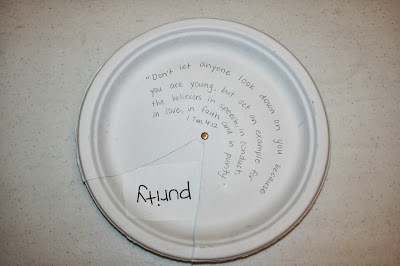 "Don't let anyone look down on you because
you are young, but set an example for
the believers in speech, in conduct,
in love, in faith and in purity.
1 Tim 4:12
purity